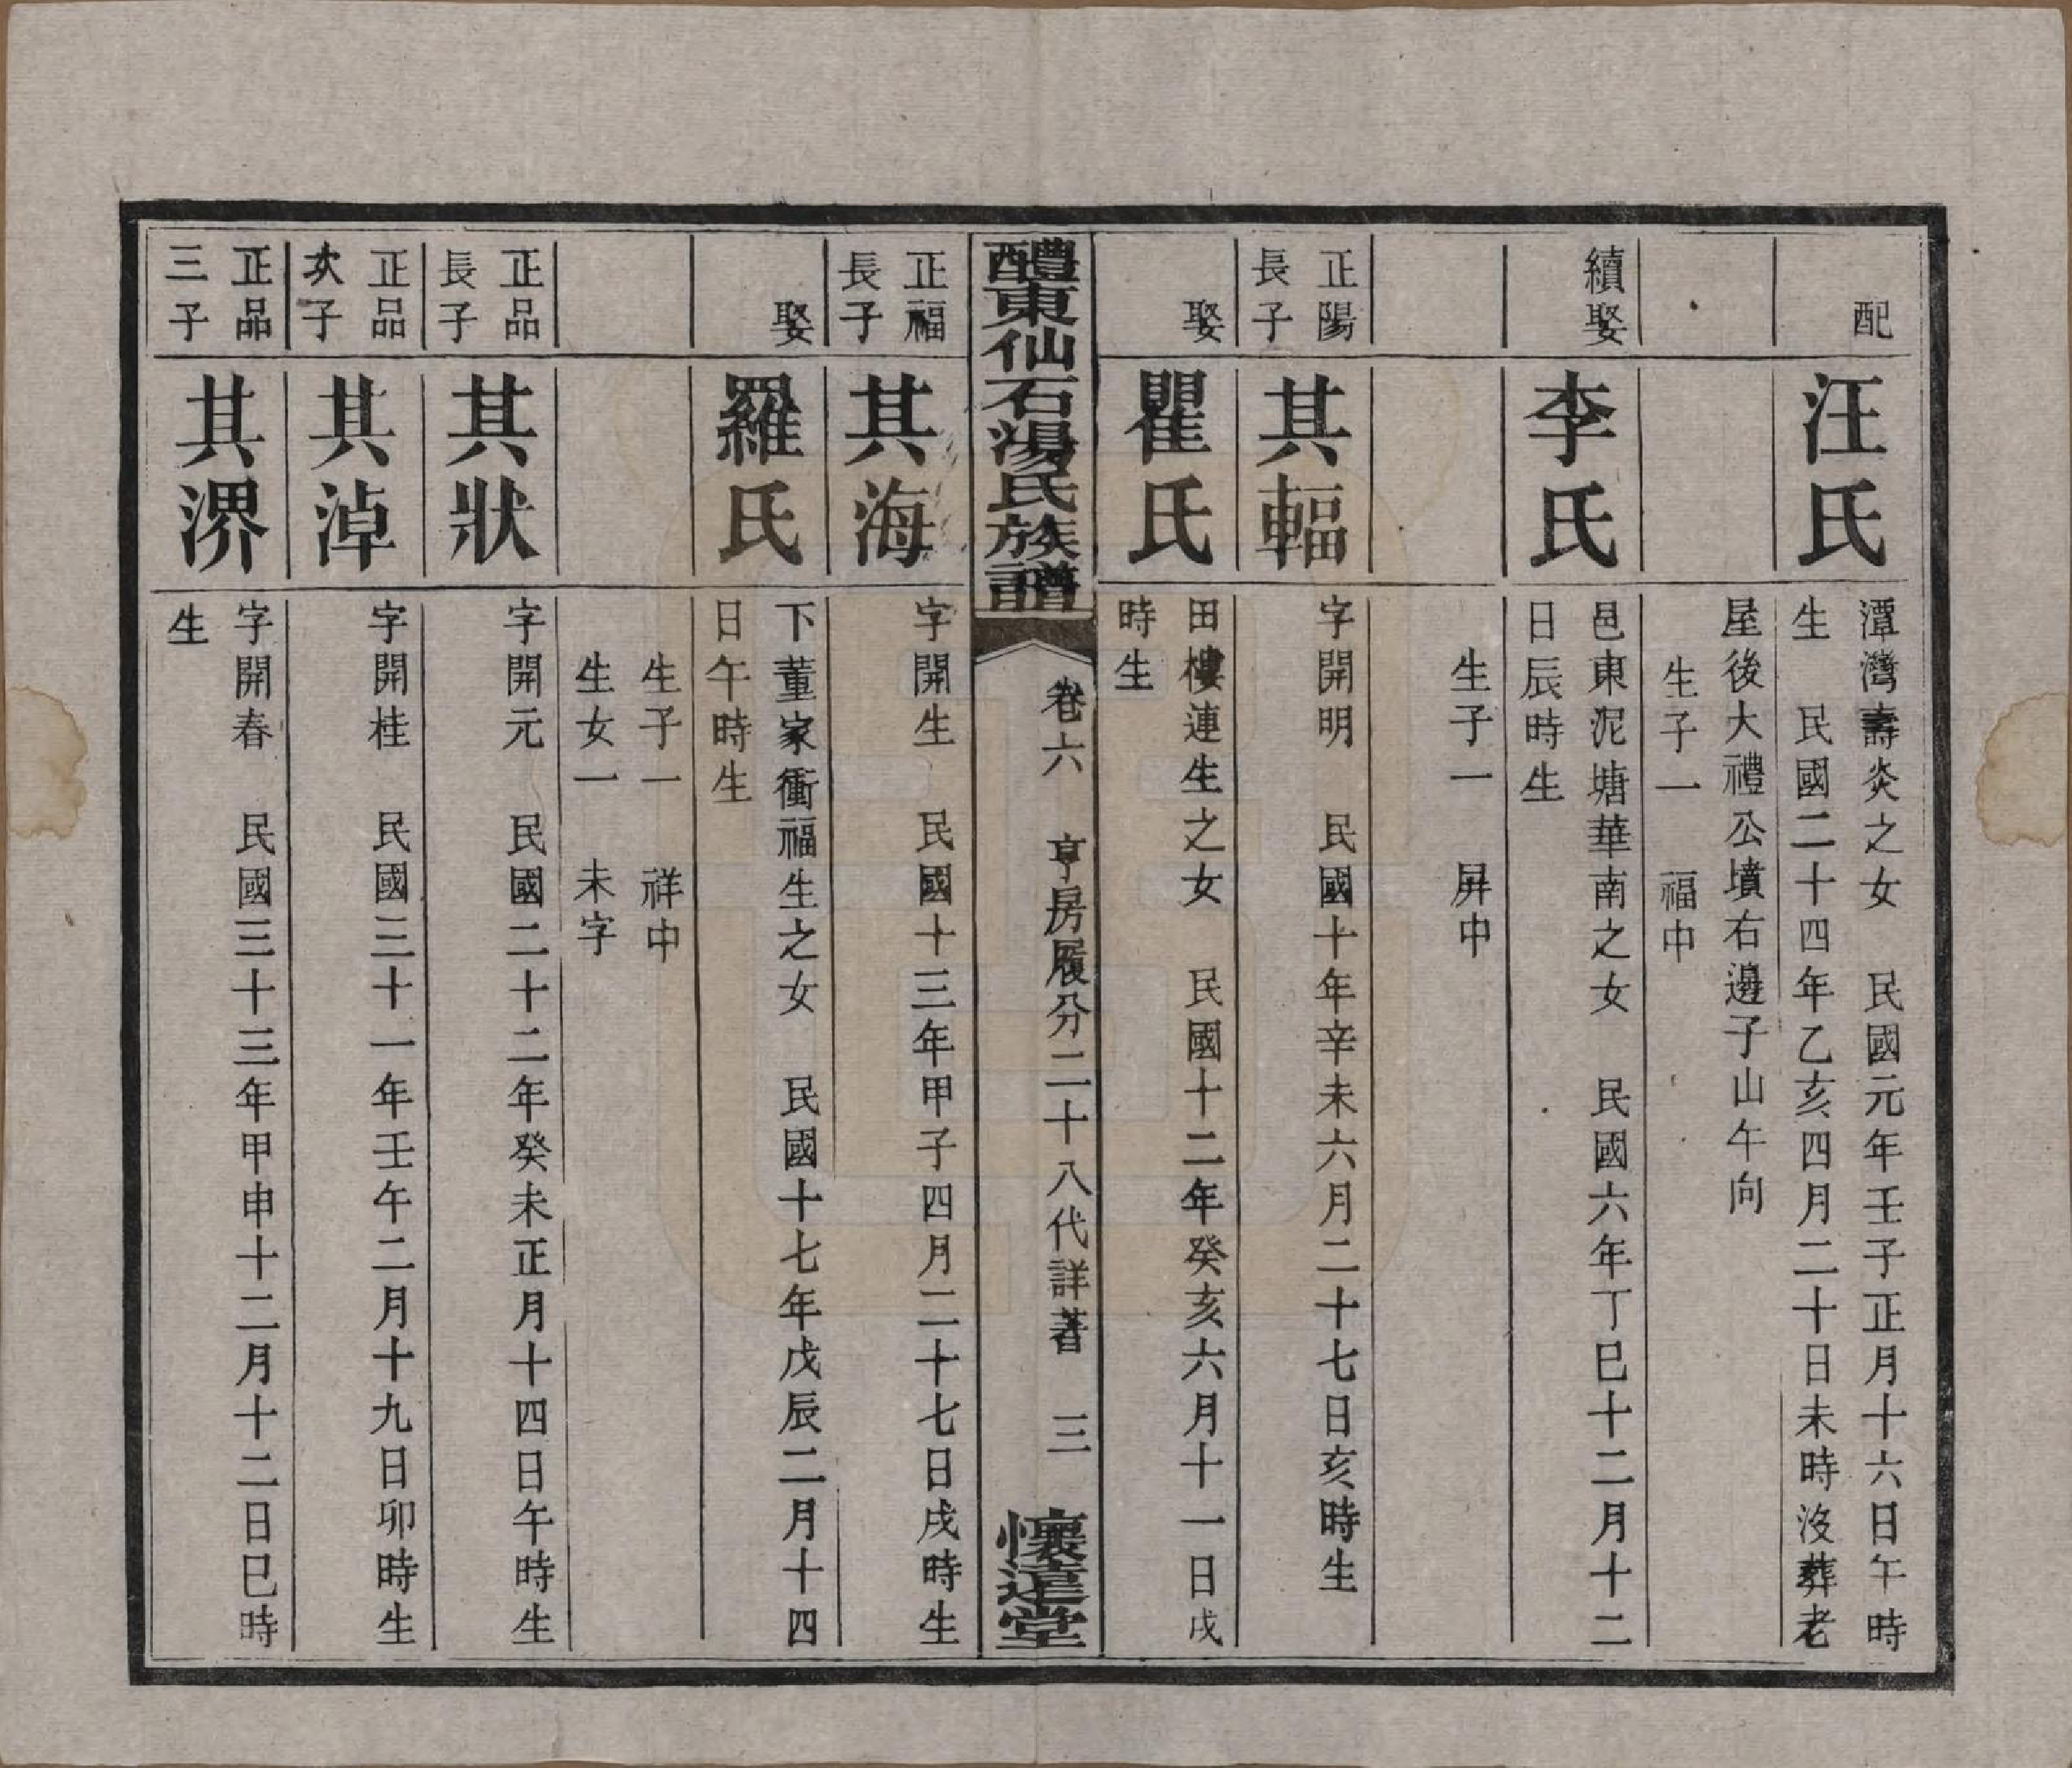 配
汪氏
潭灣壽炎之女　民國元年壬子正月十六日午時
生　民國二十四年乙亥四月二十日未時沒葬老
屋後大禮公墳右邊子山午向
生子一　福中
續娶
李氏
邑東泥塘華南之女　民國六年丁巳十二月十二
日辰時生
生子一　屏中
正陽
長子
其輻
字開明　民國十年辛未六月二十七日亥時生
娶
瞿氏
田樓連生之女　民國十二年癸亥六月十一日戌
時生
醴東仙石湯氏族譜
卷六　亨房履分二十八代詳著　三
懷遠堂
正福
長子
其海
字開生　民國十三年甲子四月二十七日戌時生
娶
羅氏
下董家衝福生之女　民國十七年戊辰二月十四
日午時生
生子一　祥中
生女一　未字
正品
長子
其狀
字開元　民國二十二年癸未正月十四日午時生
正品
次子
其淖
字開桂　民國三十一年壬午二月十九日卯時生
正品
三子
其㴍
字開春　民國三十三年甲申十二月十二日巳時
生